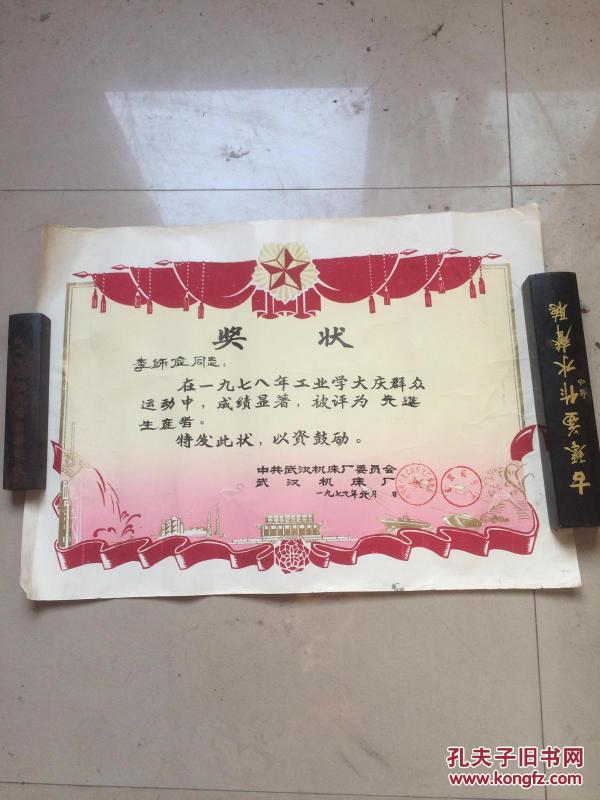 奖 状
李师俭同志：
在一九七八年工业学大庆群众
运动中，成绩显著，被评为先进
生产者。
特发此状，以资鼓励。
中共武汉机床厂委员会
武汉机床厂
一九七九年元月 日
孔夫子旧书网
www.kongfz.com